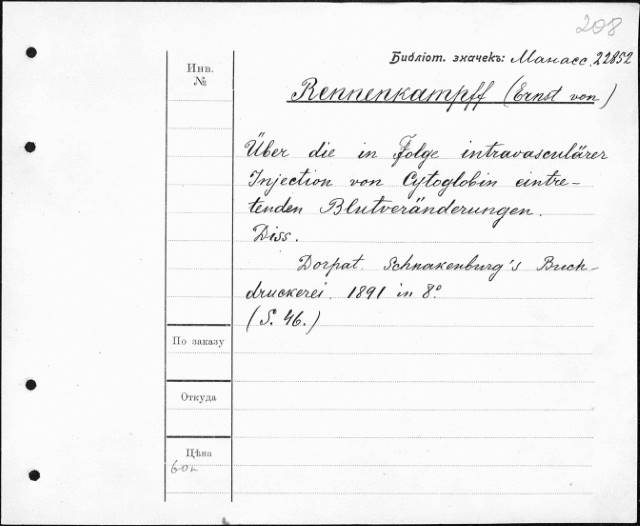 208
Библіот. значекъ: Манасс. 22852
Инв.
№
Rennenkampff (Ernst von)
Über die in Folge intravasculärer
Injection von Cytoglobin eintre-
tenden Blutveränderungen.
Diss.
Dorpat. Schnakenburg's Buch-
druckerei. 1891 in 8°.
(S. 46.)
По заказу
Откуда
Цѣна
60к